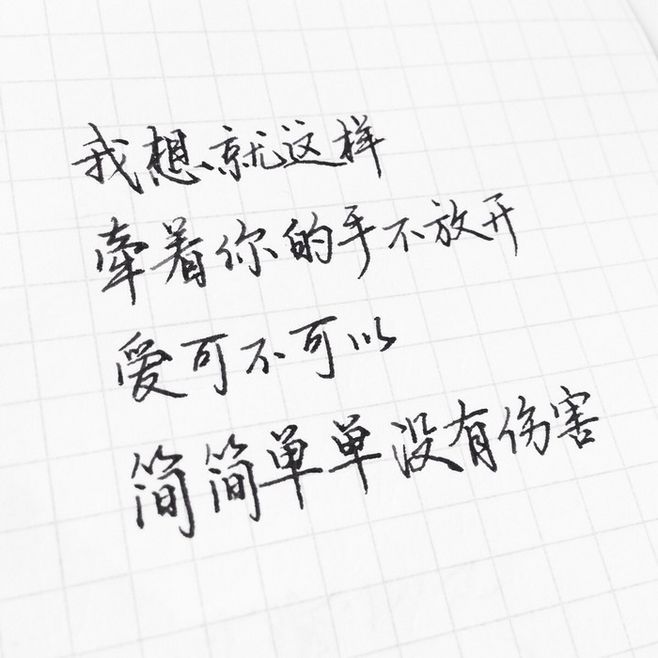 我想就这样
牵着你的手不放开
爱可不可以
简简单单没有伤害